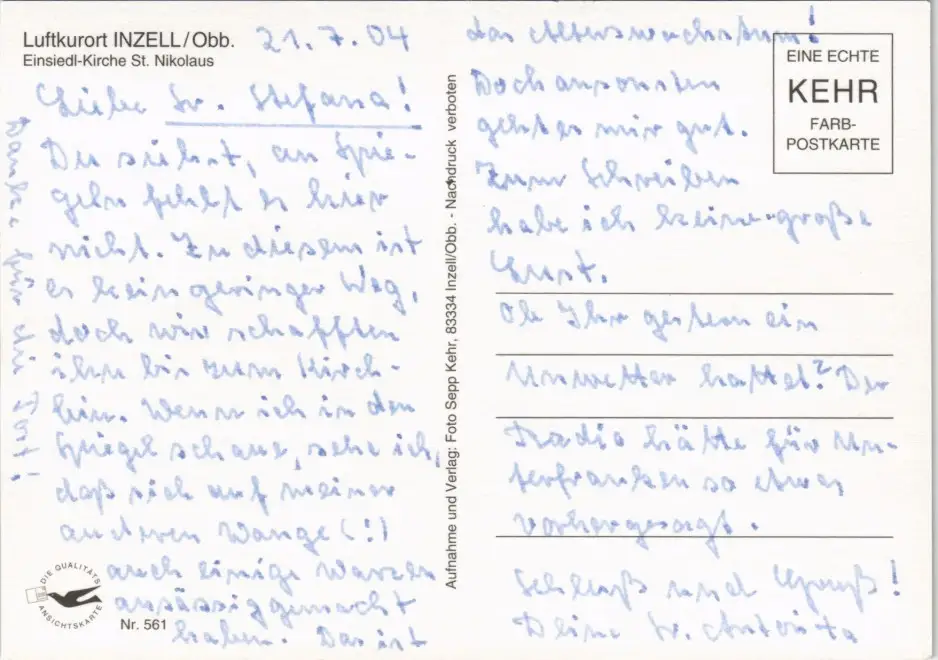 Luftkurort INZELL/Obb.
Einsiedl-Kirche St. Nikolaus
21.7.04
Liebe Sr. Stefana!
Du siehst, an Spie-
geln fehlt es hier
nicht. Zu diesem ist
es kein geringer Weg,
doch wir schafften
ihn bis zum Kirch-
lein. Wenn ich in den
Spiegel schaue, sehe ich,
daß sich auf meiner
anderen Wange (!)
auch einige Warzen
ansässig gemacht
haben. Das ist
das Alterswachstum!
Doch ansonsten
geht es mir gut.
Zum Schreiben
habe ich keine große
Lust.
Ob Ihr gestern ein
Unwetter hattet? Der
Radio hätte für Un-
terfranken so etwas
vorhergesagt.
Schluß und Gruß!
Deine Sr.
Danke für die
DIE QUALITÄTS
ANSICHTSKARTE
Nr. 561
Aufnahme und Verlag: Foto Sepp Kehr, 83334 Inzell/Obb. - Nachdruck verboten
EINE ECHTE
KEHR
FARB-
POSTKARTE